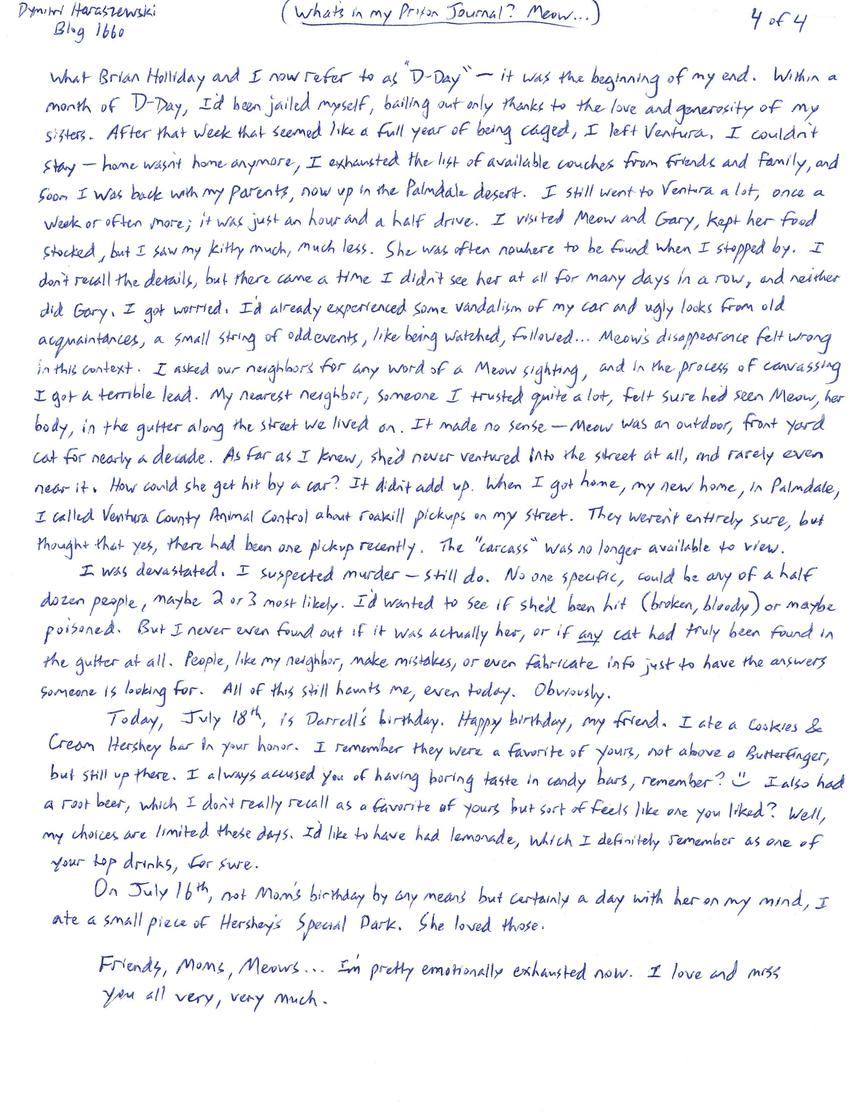 Dymitri Haraszewski
Blog 1660
(What's in my Prison Journal? Meow...)
4 of 4
What Brian Holliday and I now refer to as "D-Day" — it was the beginning of my end. Within a
month of D-Day, I'd been jailed myself, bailing out only thanks to the love and generosity of my
sisters. After that week that seemed like a full year of being caged, I left Ventura. I couldn't
stay — home wasn't home anymore, I exhausted the list of available couches from friends and family, and
soon I was back with my parents, now up in the Palmdale desert. I still went to Ventura a lot, once a
week or often more; it was just an hour and a half drive. I visited Meow and Gary, kept her food
stocked, but I saw my kitty much, much less. She was often nowhere to be found when I stopped by. I
don't recall the details, but there came a time I didn't see her at all for many days in a row, and neither
did Gary. I got worried. I'd already experienced some vandalism of my car and ugly looks from old
acquaintances, a small string of odd events, like being watched, followed... Meow's disappearance felt wrong
in this context. I asked our neighbors for any word of a Meow sighting, and in the process of canvassing
I got a terrible lead. My nearest neighbor, someone I trusted quite a lot, felt sure he'd seen Meow, her
body, in the gutter along the street we lived on. It made no sense — Meow was an outdoor, front yard
cat for nearly a decade. As far as I knew, she'd never ventured into the street at all, and rarely even
near it. How could she get hit by a car? It didn't add up. When I got home, my new home, in Palmdale,
I called Ventura County Animal Control about roakill pickups on my street. They weren't entirely sure, but
thought that yes, there had been one pickup recently. The "carcass" was no longer available to view.
I was devastated. I suspected murder — still do. No one specific, could be any of a half
dozen people, maybe 2 or 3 most likely. I'd wanted to see if she'd been hit (broken, bloody) or maybe
poisoned. But I never even found out if it was actually her, or if any cat had truly been found in
the gutter at all. People, like my neighbor, make mistakes, or even fabricate info just to have the answers
someone is looking for. All of this still haunts me, even today. Obviously.
Today, July 18th, is Darrell's birthday. Happy birthday, my friend. I ate a Cookies &
Cream Hershey bar in your honor. I remember they were a favorite of yours, not above a Butterfinger,
but still up there. I always accused you of having boring taste in candy bars, remember? I also had
a root beer, which I don't really recall as a favorite of yours but sort of feels like one you liked? Well,
my choices are limited these days. I'd like to have had lemonade, which I definitely remember as one of
your top drinks, for sure.
On July 16th, not Mom's birthday by any means but certainly a day with her on my mind, I
ate a small piece of Hershey's Special Dark. She loved those.
Friends, Moms, Meows... I'm pretty emotionally exhausted now. I love and miss
you all very, very much.